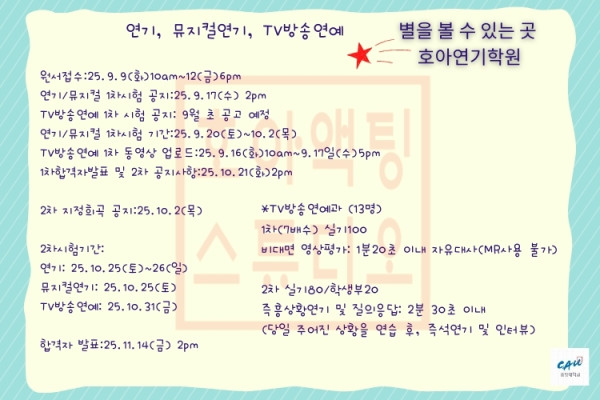 연기, 뮤지컬연기, TV방송연예
별을 볼 수 있는 곳
호아연기학원
원서접수:25.9.9(화)10am~12(금)6pm
연기/뮤지컬 1차시험 공지:25.9.17(수) 2pm
TV방송연예 1차 시험 공지: 9월 초 공고 예정
연기/뮤지컬 1차시험 기간:25.9.20(토)~10.2(목)
TV방송연예 1차 동영상 업로드:25.9.16(화)10am~9.17일(수)5pm
1차합격자발표 및 2차 공지사항:25.10.21(화)2pm
2차 지정희곡 공지:25.10.2(목)
2차시험기간:
연기: 25.10.25(토)~26(일)
뮤지컬연기: 25.10.25(토)
TV방송연예: 25.10.31(금)
합격자 발표:25.11.14(금) 2pm
*TV방송연예과 (13명)
1차(7배수) 실기100
비대면 영상평가: 1분20초 이내 자유대사(MR사용 불가)
2차 실기80/학생부20
즉흥상황연기 및 질의응답: 2분 30초 이내
(당일 주어진 상황을 연습 후, 즉석연기 및 인터뷰)
호아액팅
스튜디오
CAU
중앙대학교